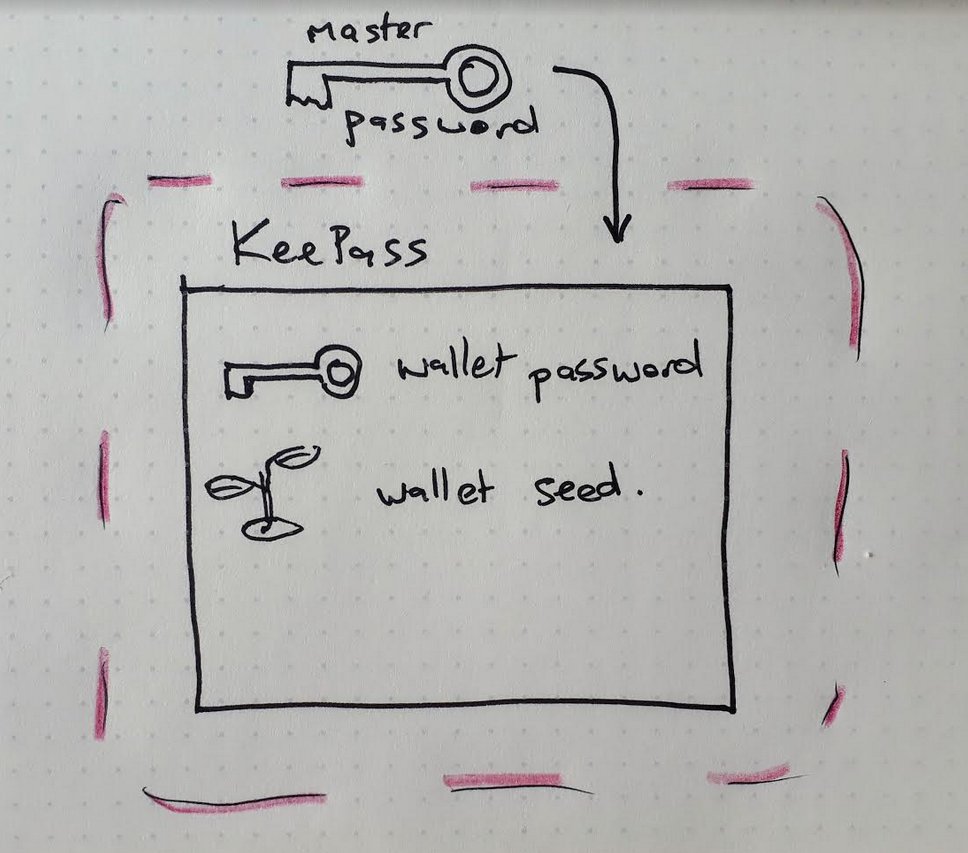 Master
password
KeePass
wallet password
wallet seed.